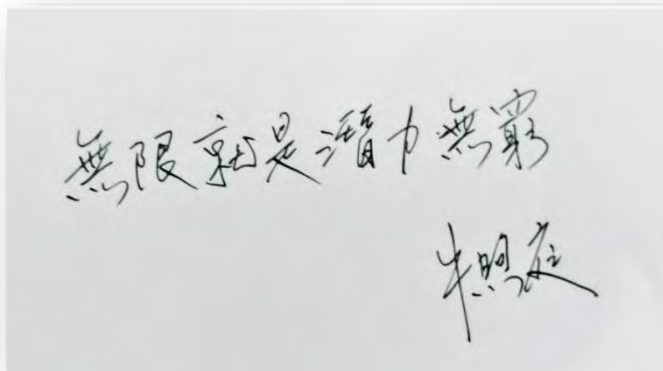 無限就是潛力無窮
牛煦庭